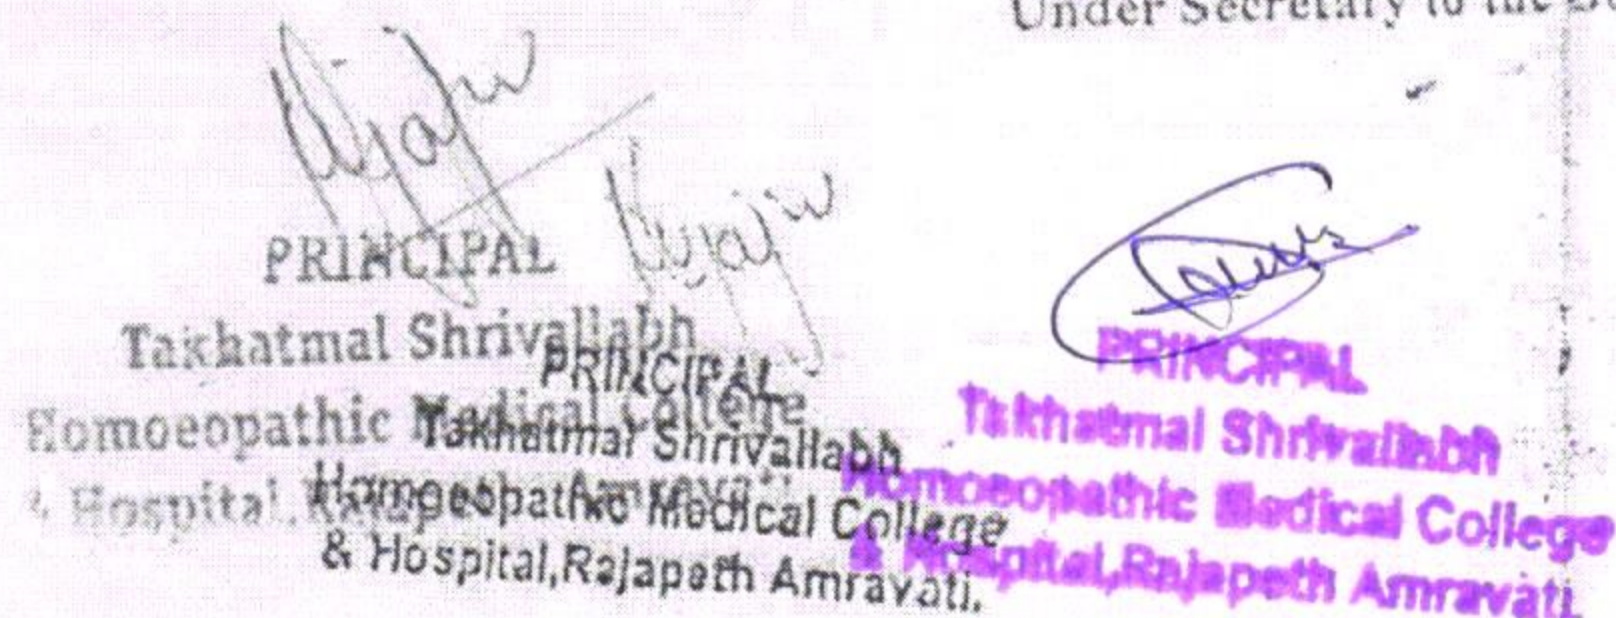 Under Secretary to the
PRINCIPAL
Takhatmal Shrivallabh
Homoeopathic Medical College
& Hospital, Amravati
PRINCIPAL
Takhatmal Shrivallabh
Homoeopathic Medical College
& Hospital,Rajapeth Amravati.
PRINCIPAL
Takhatmal Shrivallabh
Homoeopathic Medical College
& Hospital,Rajapeth Amravati.